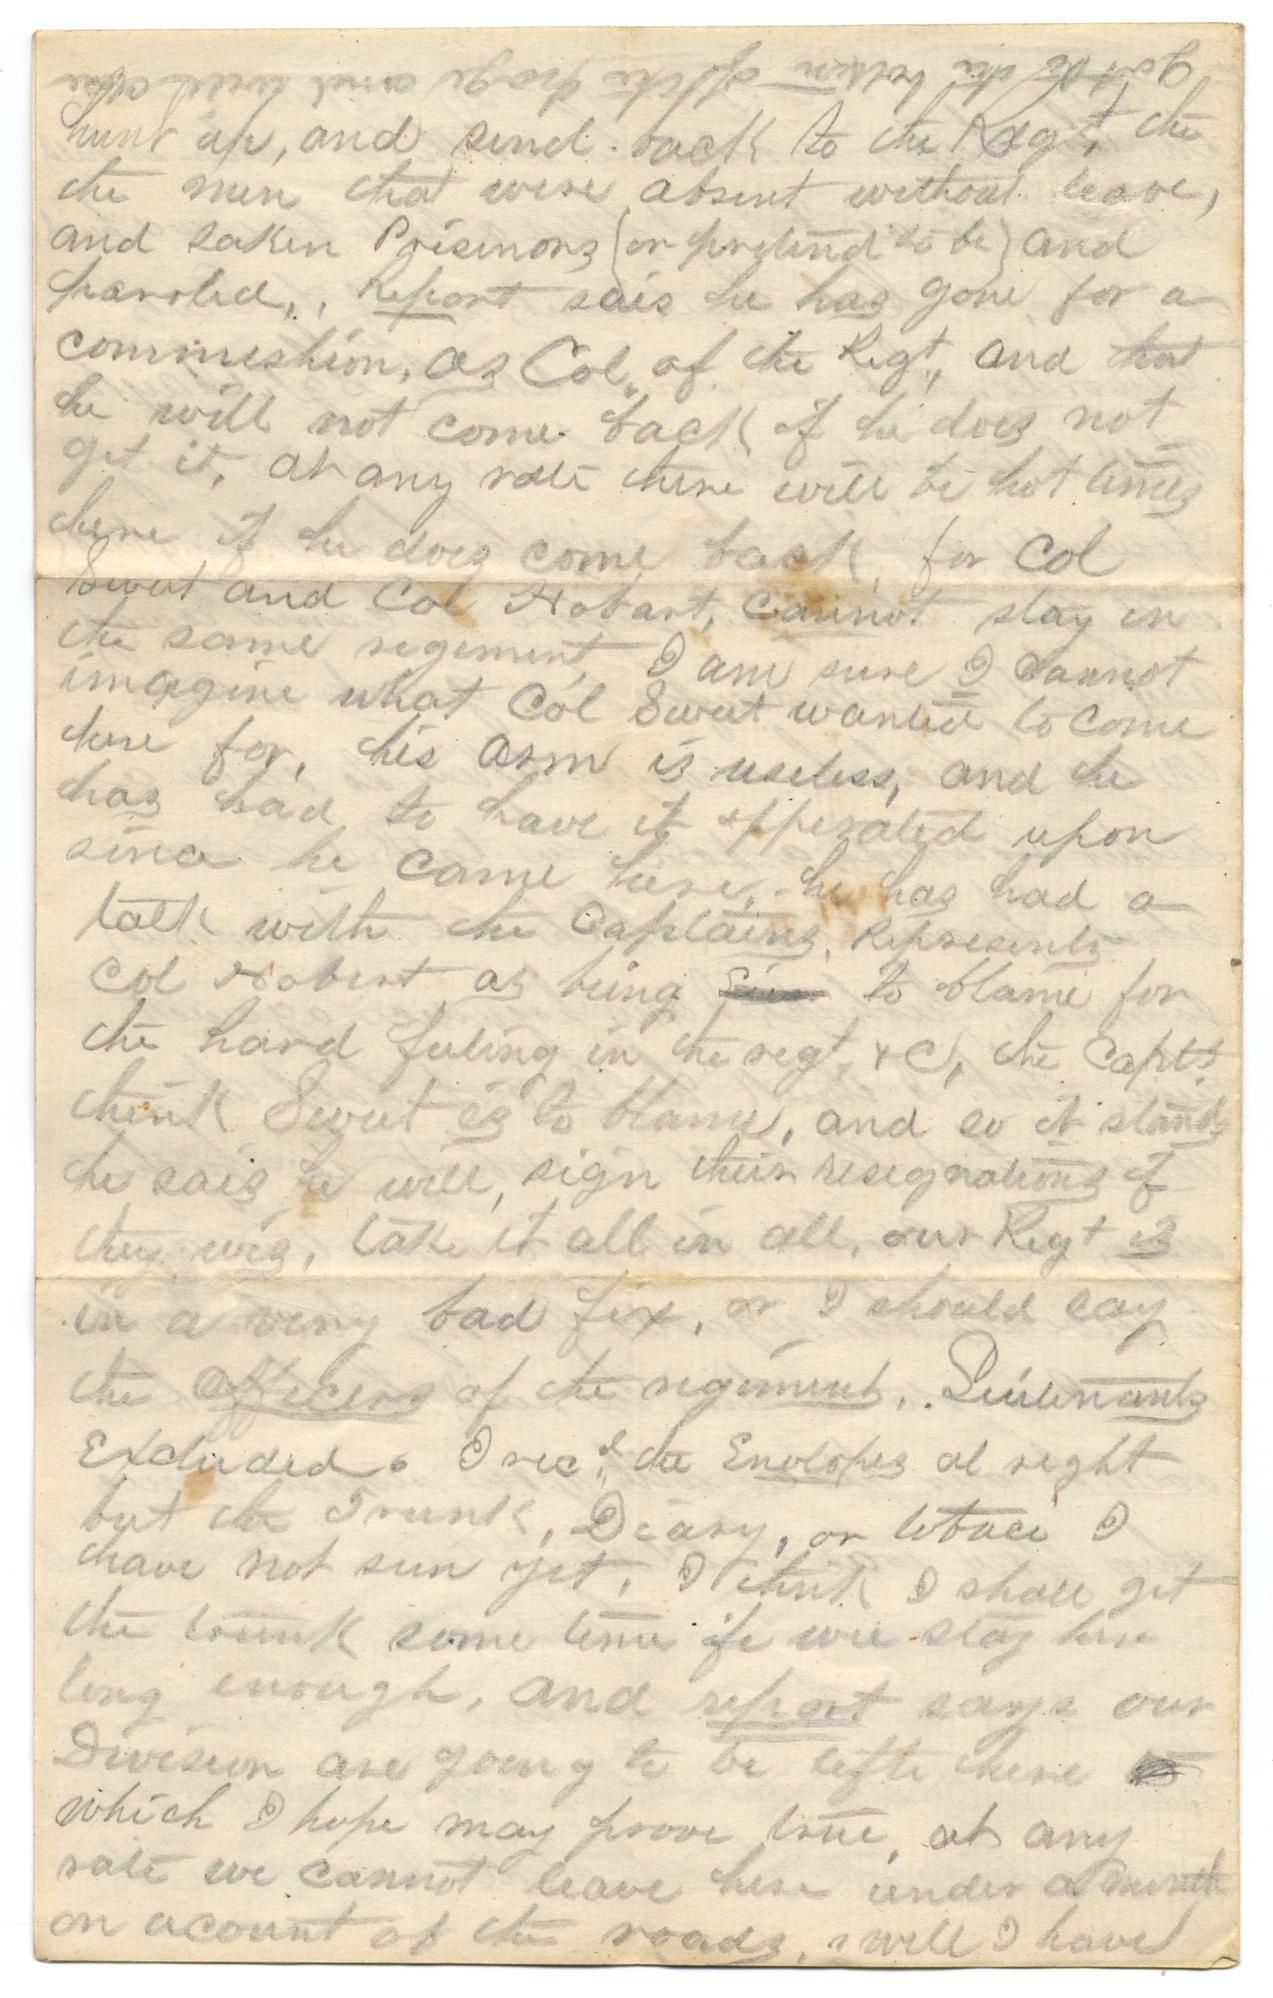 got to the bottom of the page and will close
hunt up, and send back to the Regt, the
the men that were absent without leave,
and taken Prisenors (or pretend to be) and
parroled,. Report sais he has gone for a
commishion, as Col, of the Regt, and that
he will not come back if he does not
get it, at any rate there will be hot times
here if he does come back, for Col
Sweet and Col Hobart, cannot stay in
the same regiment, I am sure I cannot
imagine what Col Sweet wanted to come
here for, his arm is useless, and he
has had to have it opperated upon
since he came here, he has had a
talk with the Captains, Represents
Col Hobert as being to blame for
the hard feeling in the regt, &C, the Capts
think Sweet is to blame, and so it stands
he sais he will, sign their resegnations if
they wis, take it all in all, our Regt is
in a very bad fix, or I should say
the officers of the regiment,. Leiutenants
Excluded. I recd the Envelopes al right
but the Trunk, Diary, or tobaco I
have not seen yet, I think I shall get
the trunk some time if we stay here
long enough, and report says our
Division are going to be lefte here
which I hope may prove true, at any
rate we cannot leave here under a month
on acount of the roads, well I have